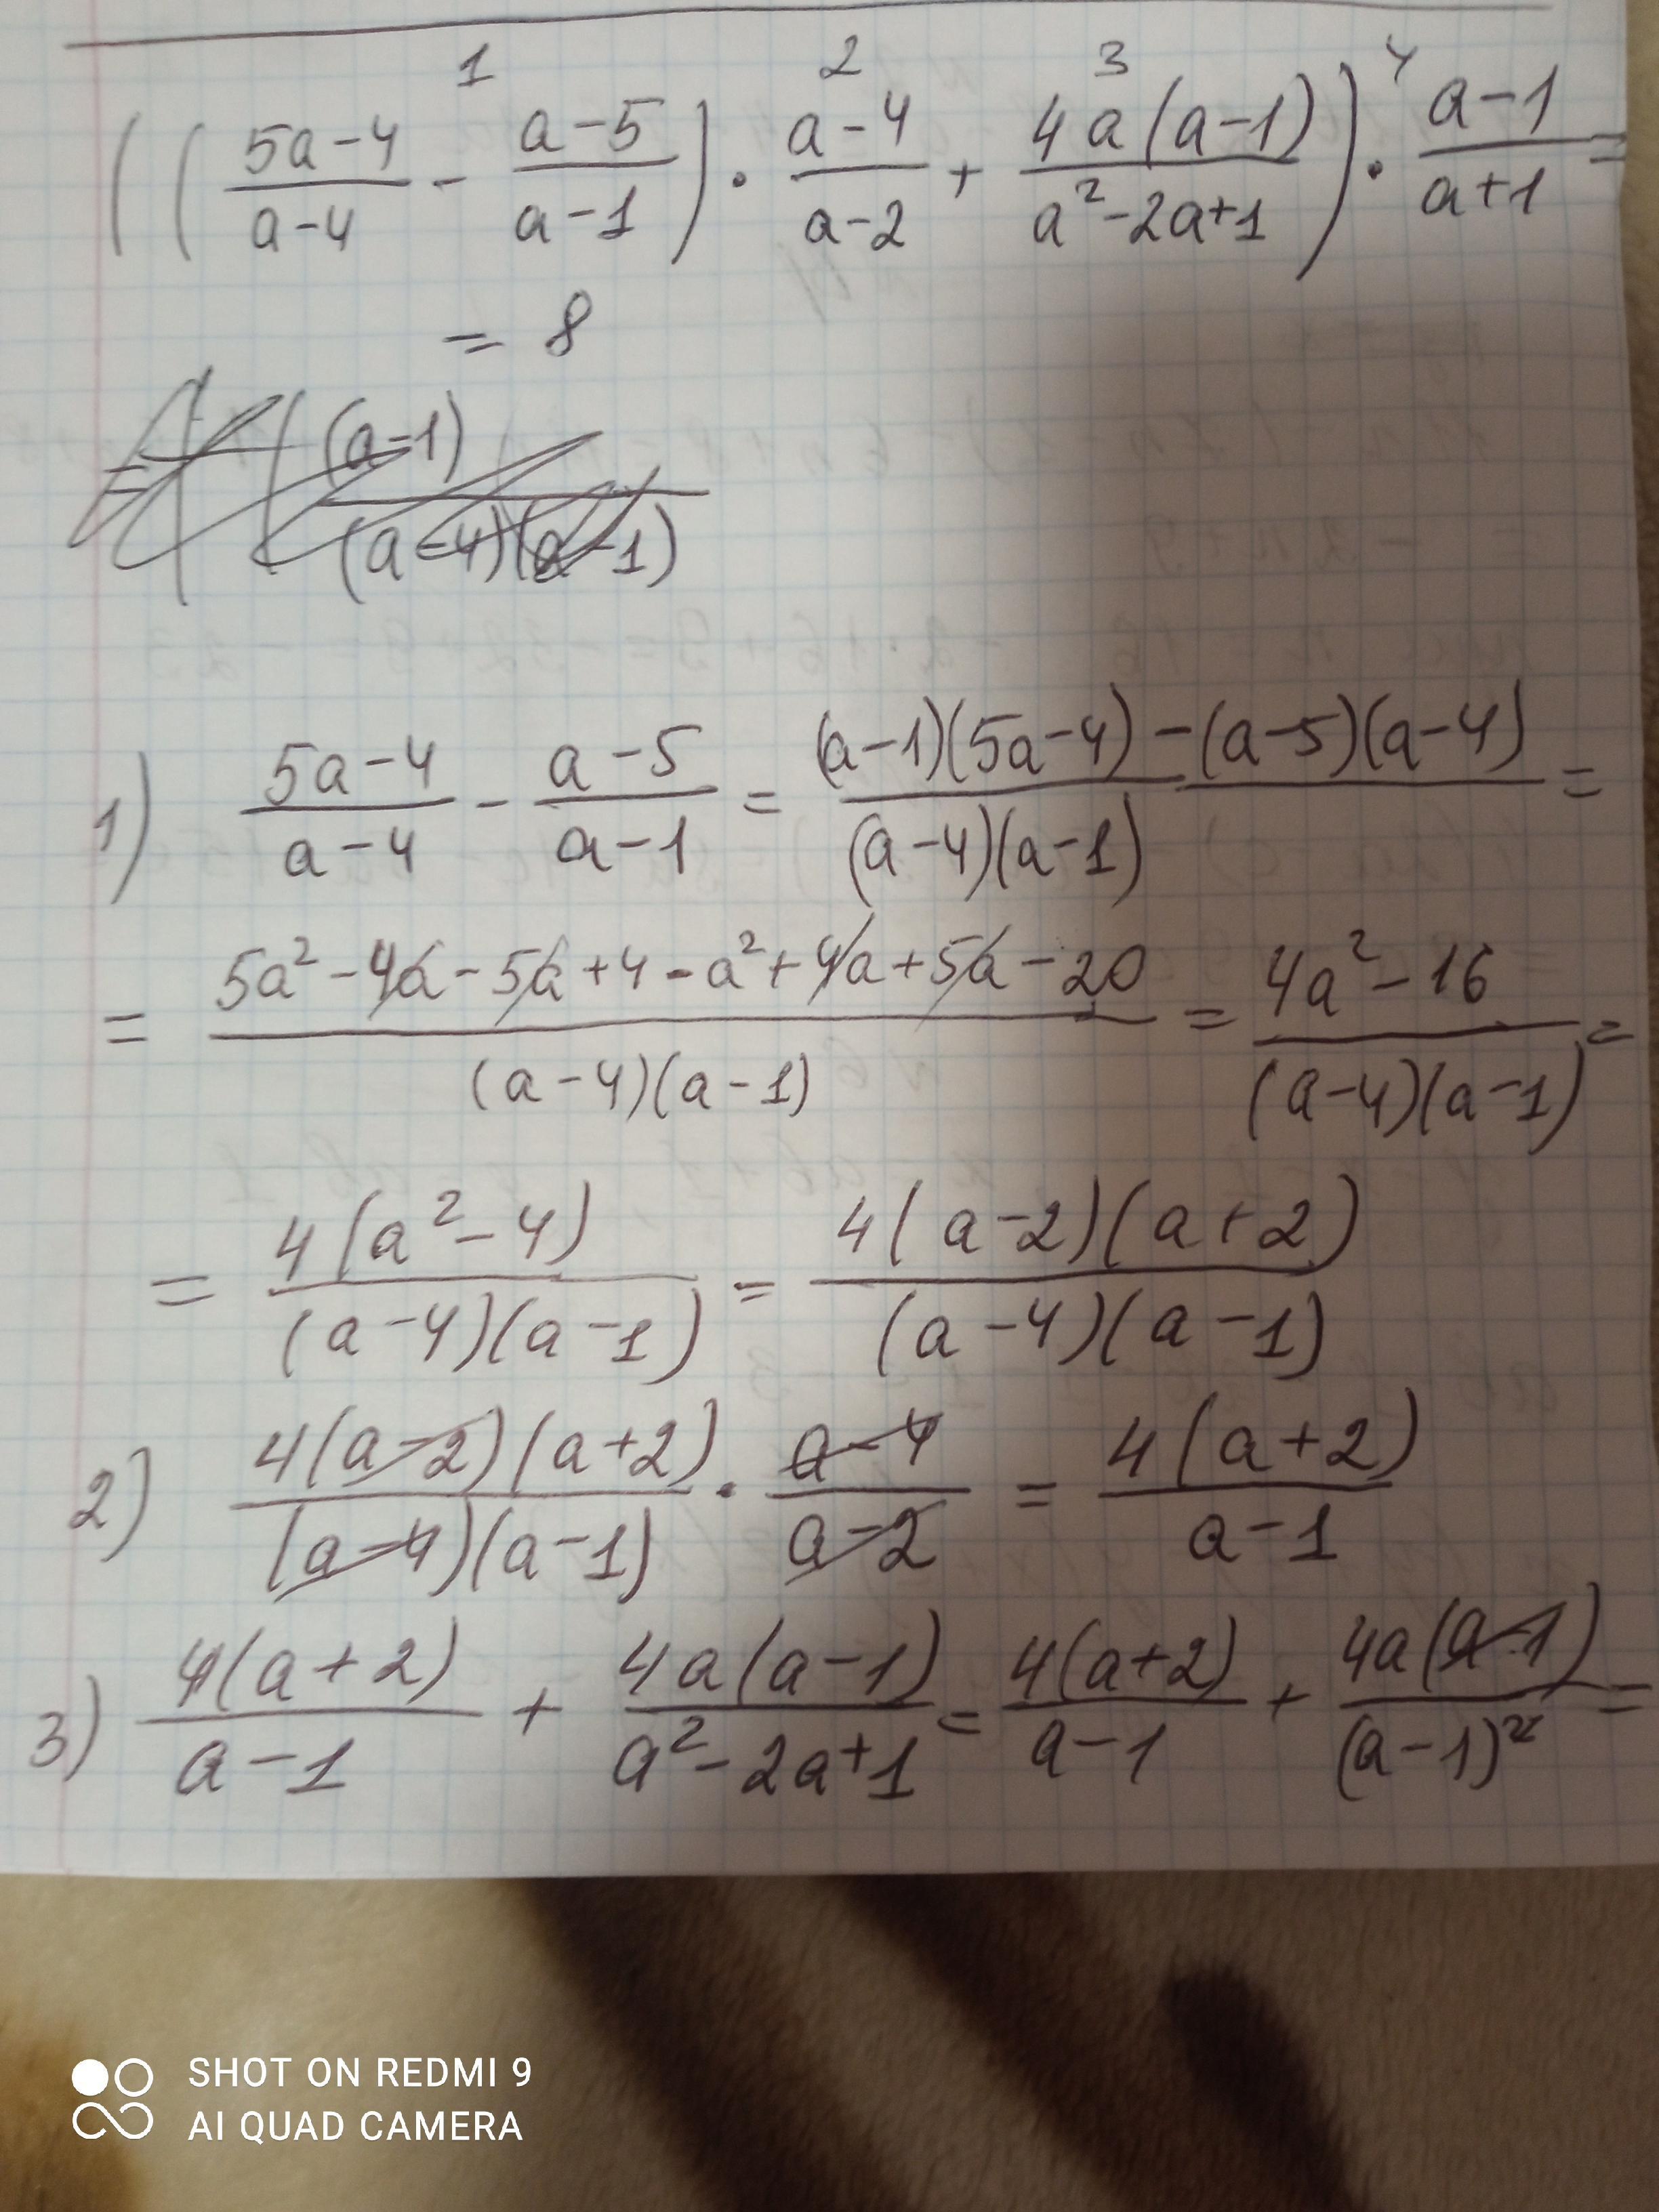 1 2 3 4
((5a-4/a-4 - a-5/a-1) · a-4/a-2 + 4a(a-1)/a²-2a+1) · a-1/a+1 =
= 8
= ((a-1)/(a-4)(a-1)
1) 5a-4/a-4 - a-5/a-1 = (a-1)(5a-4)-(a-5)(a-4)/(a-4)(a-1) =
= 5a²-4a-5a+4-a²+4a+5a-20/(a-4)(a-1) = 4a²-16/(a-4)(a-1) =
= 4(a²-4)/(a-4)(a-1) = 4(a-2)(a+2)/(a-4)(a-1)
2) 4(a-2)(a+2)/(a-4)(a-1) · a-4/a-2 = 4(a+2)/a-1
3) 4(a+2)/a-1 + 4a(a-1)/a²-2a+1 = 4(a+2)/a-1 + 4a(a-1)/(a-1)² =
SHOT ON REDMI 9
AI QUAD CAMERA